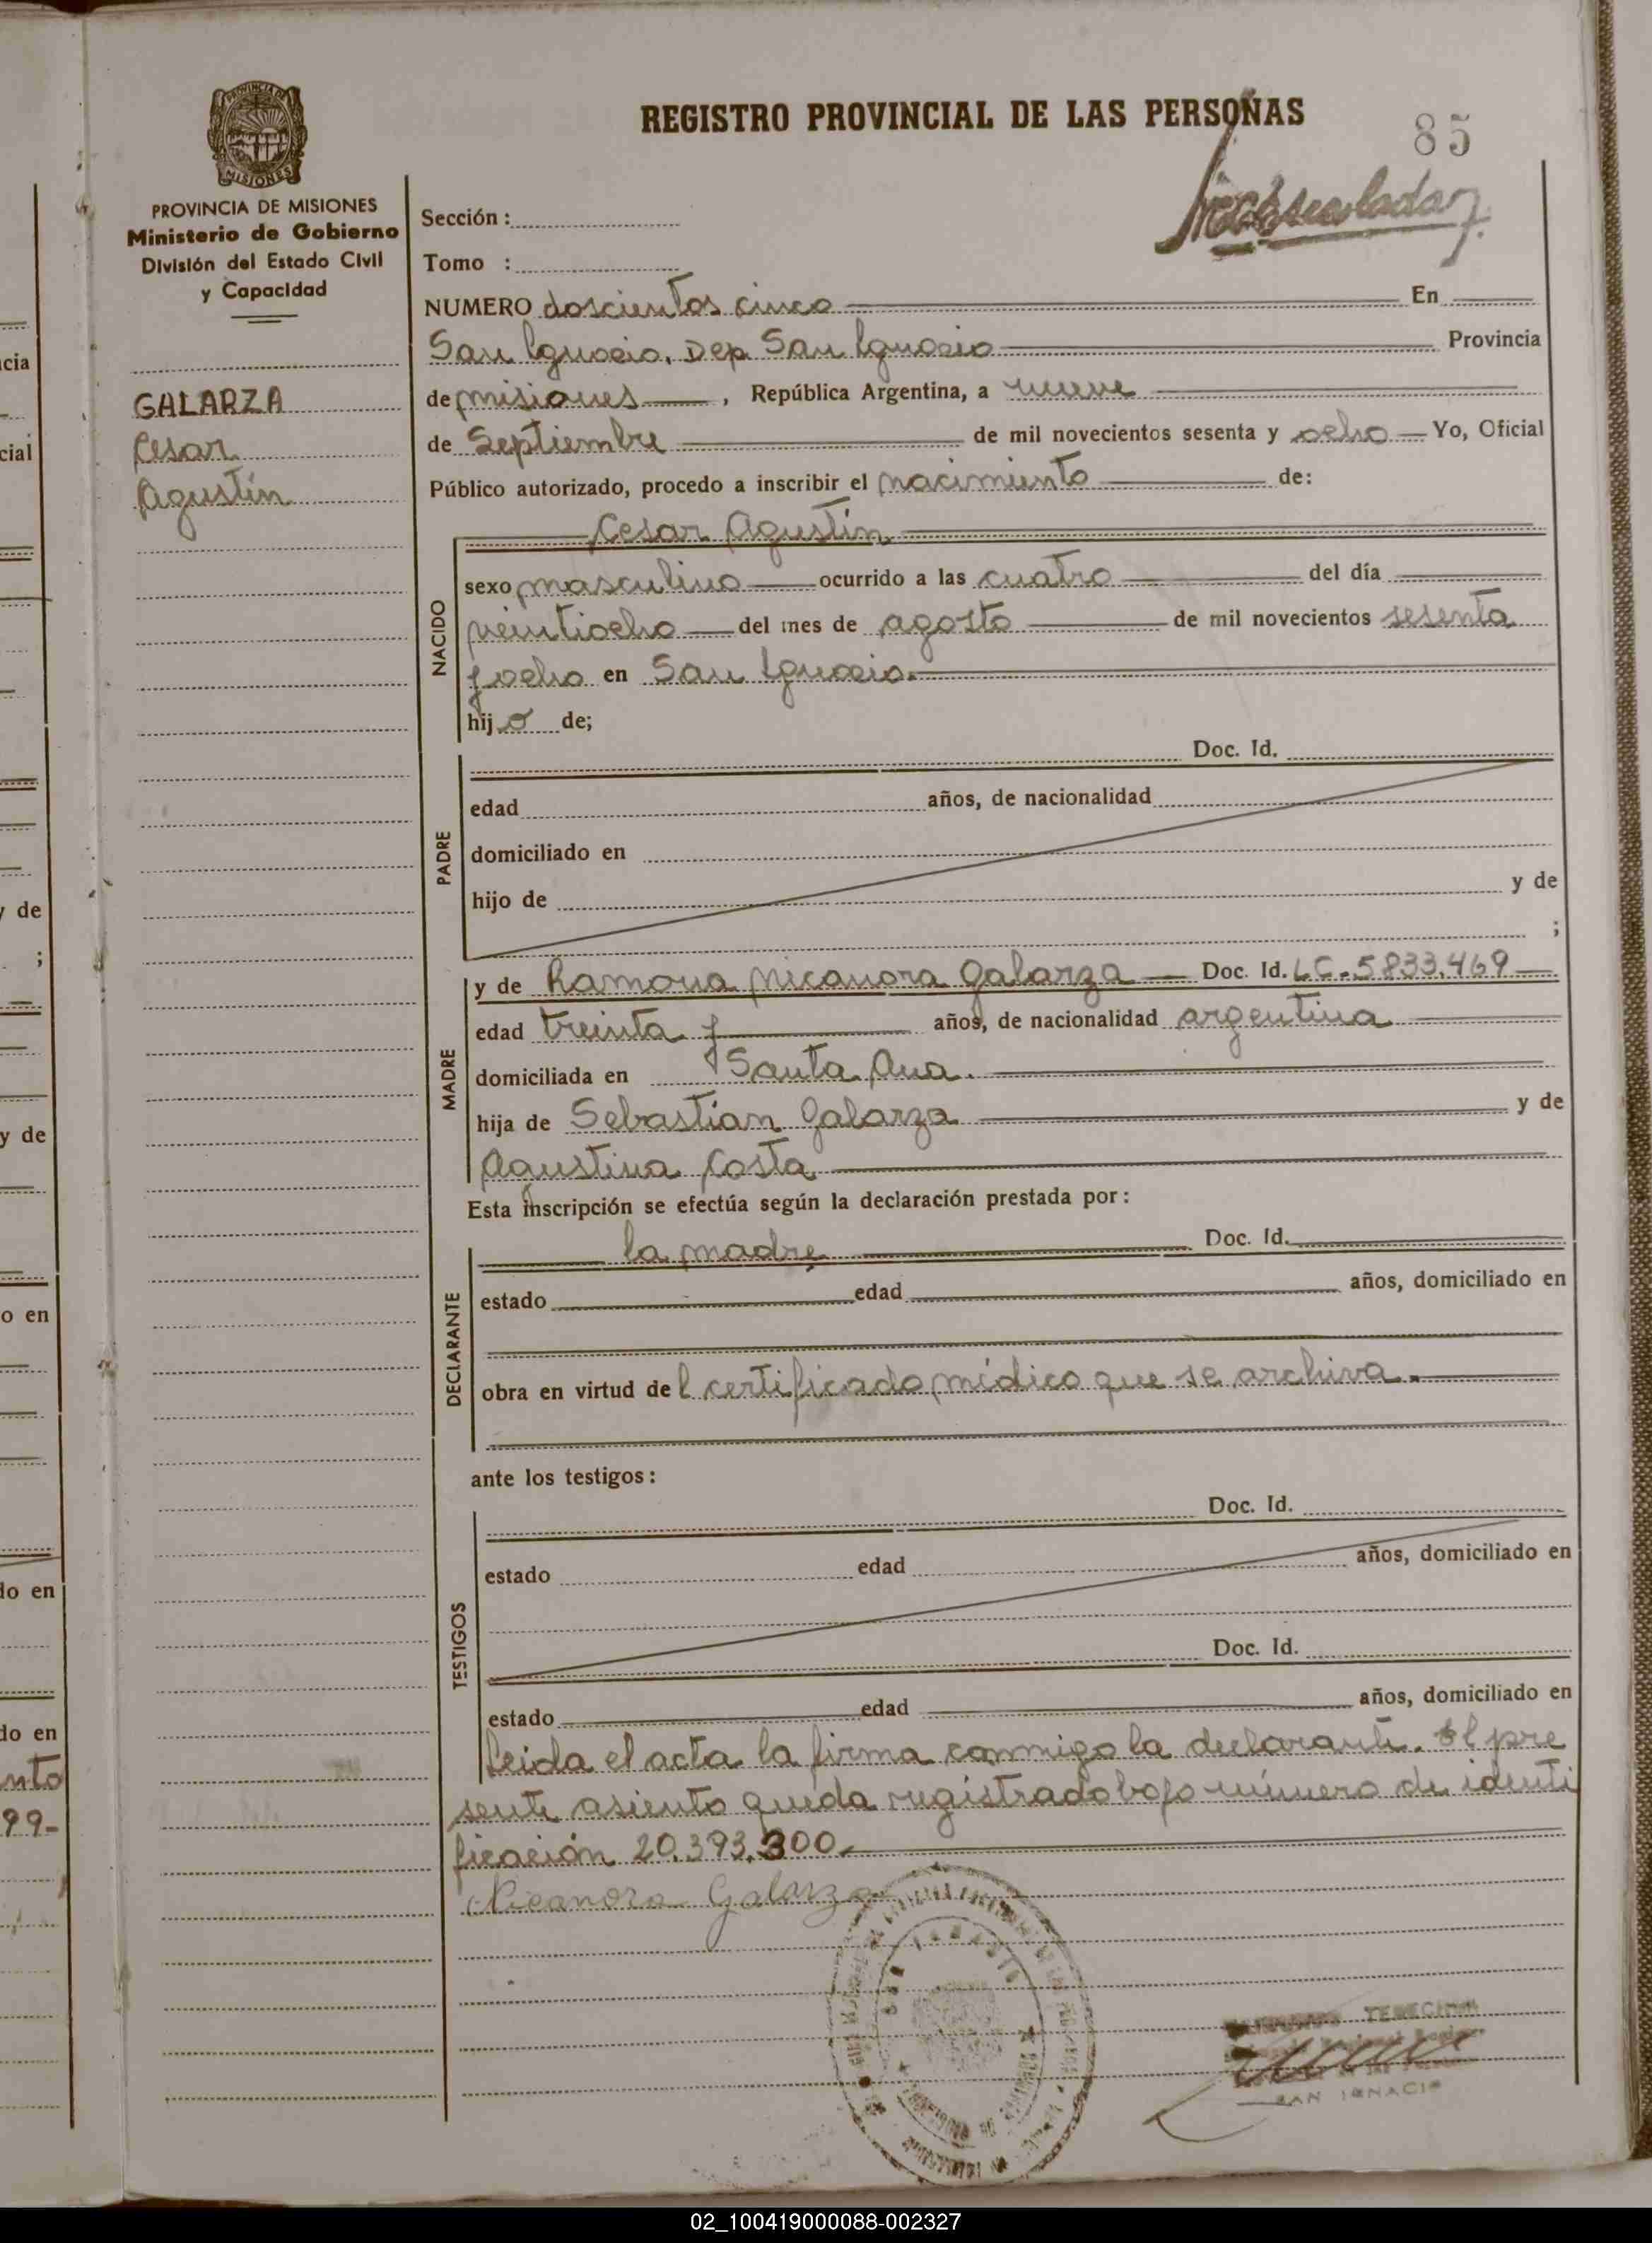 REGISTRO PROVINCIAL DE LAS PERSONAS
85
PROVINCIA DE MISIONES
Ministerio de Gobierno
División del Estado Civil
y Capacidad
GALARZA
Cesar
Agustín
Sección :
Tomo :
NUMERO doscientos cinco En
San Ignacio, Dep. San Ignacio Provincia
de misiones, República Argentina, a nueve
de Septiembre de mil novecientos sesenta y ocho Yo, Oficial
Público autorizado, procedo a inscribir el nacimiento de:
Cesar Agustín
NACIDO
sexo masculino ocurrido a las cuatro del día
veintiocho del mes de agosto de mil novecientos sesenta
y ocho en San Ignacio.
hijo de;
PADRE
Doc. Id.
edad años, de nacionalidad
domiciliado en
hijo de y de
;
MADRE
y de Ramona Nicanora Galarza Doc. Id. LC. 5833.469
edad treinta y años, de nacionalidad argentina
domiciliada en Santa Ana.
hija de Sebastian Galarza y de
Agustina Costa
Esta inscripción se efectúa según la declaración prestada por:
DECLARANTE
la madre Doc. Id.
estado edad años, domiciliado en
obra en virtud del certificado médico que se archiva.
ante los testigos:
TESTIGOS
Doc. Id.
estado edad años, domiciliado en
Doc. Id.
estado edad años, domiciliado en
Leida el acta la firma conmigo la declarante. El pre
sente asiento queda registrado bajo número de identi
ficación 20.393.300.
Nicanora Galarza
SAN IGNACIO
cia
cial
y de
;
y de
o en
do en
do en
nto
99-
02_100419000088-002327